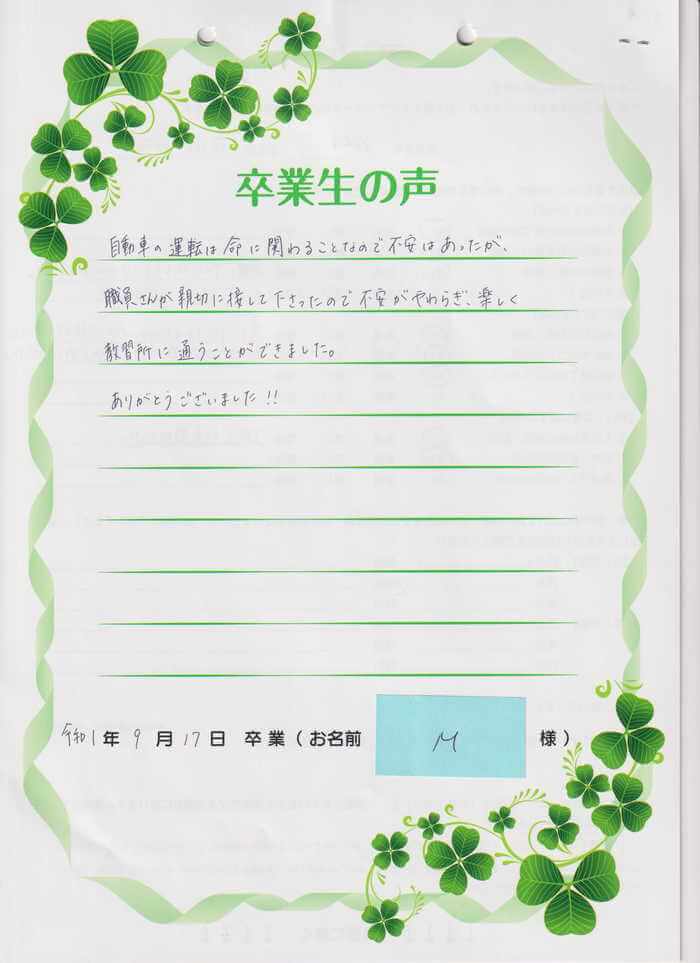 卒業生の声
自動車の運転は命に関わることなので不安はあったが、
職員さんが親切に接して下さったので不安がやわらぎ、楽しく
教習所に通うことができました。
ありがとうございました!!
令和1年9月17日 卒業(お名前 M 様)